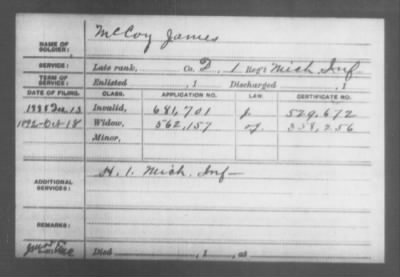 NAME OF SOLDIER: McCoy James
SERVICE: Late rank, Co. D, 1 Reg't Mich Inf
TERM OF SERVICE: Enlisted , 1 Discharged , 1
DATE OF FILING. CLASS. APPLICATION NO. LAW. CERTIFICATE NO.
1888 13 Invalid, 681,701 529,672
1892 Oct 18 Widow, 562,157 358,256
Minor,
ADDITIONAL SERVICES: H. 1. Mich. Inf
REMARKS:
Died , 1 , at